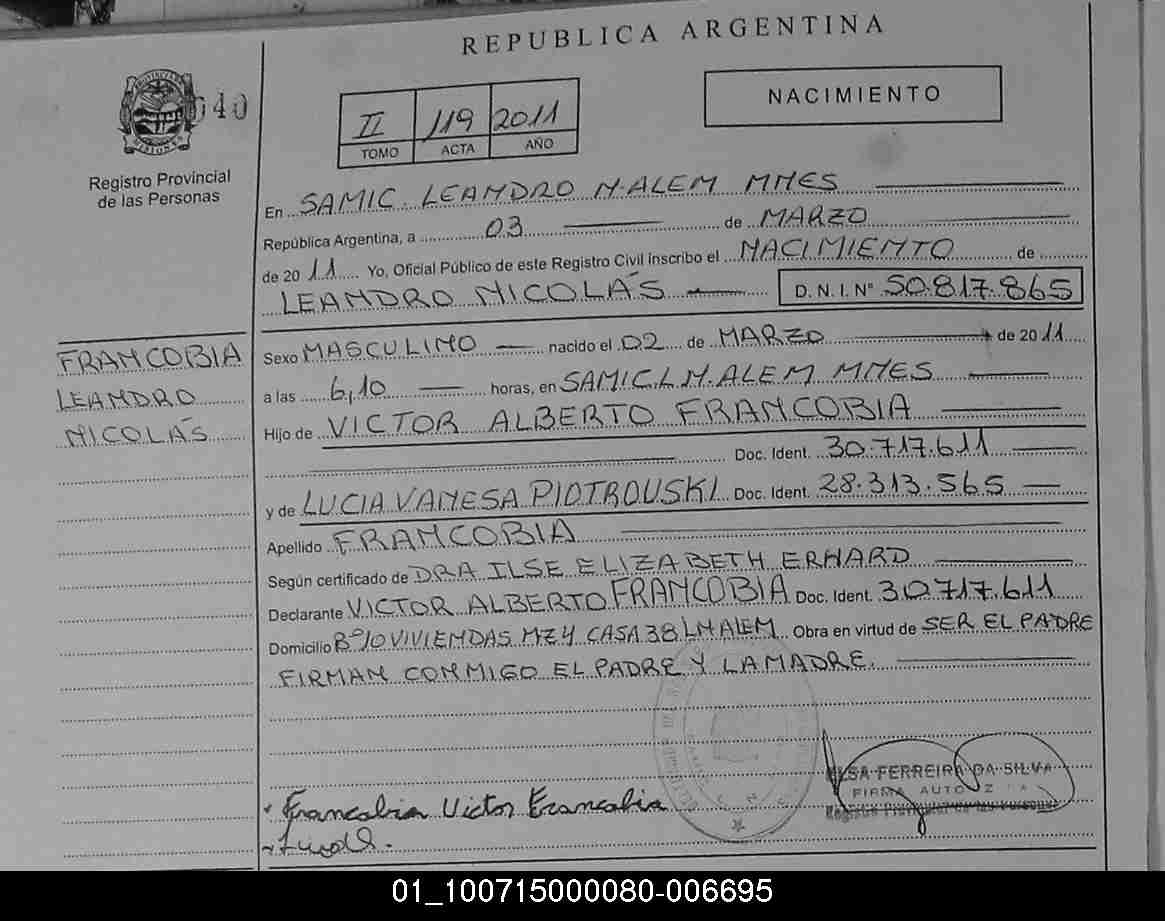 REPUBLICA ARGENTINA
040
NACIMIENTO
II 119 2011
TOMO ACTA AÑO
PROVINCIA DE
MISIONES
Registro Provincial
de las Personas
En SAMIC. LEANDRO N. ALEM MNES
República Argentina, a 03 de MARZO
de 2011 Yo, Oficial Público de este Registro Civil inscribo el NACIMIENTO de
LEANDRO NICOLÁS D. N. I. N° 50.817.865
FRANCOBIA
LEANDRO
NICOLÁS
Sexo MASCULINO nacido el 02 de MARZO de 2011
a las 6,10 horas, en SAMIC.L.N.ALEM MNES
Hijo de VICTOR ALBERTO FRANCOBIA
Doc. Ident. 30.717.611
y de LUCIA VANESA PIOTROUSKI Doc. Ident. 28.313.565
Apellido FRANCOBIA
Según certificado de DRA ILSE ELIZABETH ERHARD
Declarante VICTOR ALBERTO FRANCOBIA Doc. Ident. 30.717.611
Domicilio B° 10 VIVIENDAS MZ4 CASA 38 LNALEM Obra en virtud de SER EL PADRE
FIRMAN CONMIGO EL PADRE Y LA MADRE.
ELSA FERREIRA DA SILVA
FIRMA AUTORIZADA
Registro Provincial de las Personas
Francobia Victor Francobia
01_100715000080-006695